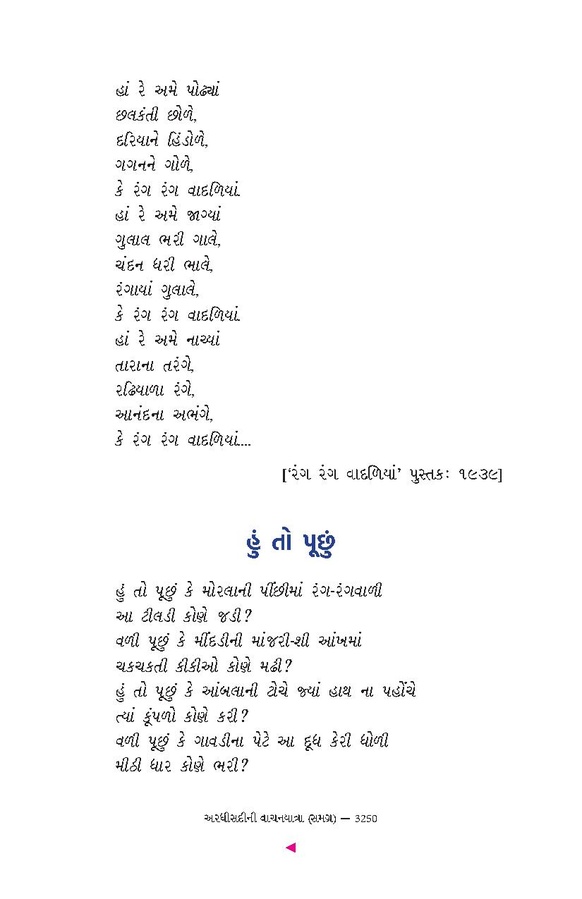 હાં રે અમે પોઢ્યાં
છલકંતી છોળે,
દરિયાને હિંડોળે,
ગગનને ગોળે,
કે રંગ રંગ વાદળિયાં.
હાં રે અમે જાગ્યાં
ગુલાલ ભરી ગાલે,
ચંદન ધરી ભાલે,
રંગાયાં ગુલાલે,
કે રંગ રંગ વાદળિયાં.
હાં રે અમે નાચ્યાં
તારાના તરંગે,
રઢિયાળા રંગે,
આનંદના અભંગે,
કે રંગ રંગ વાદળિયાં....
[‘રંગ રંગ વાદળિયાં’ પુસ્તકઃ ૧૯૩૯]
હું તો પૂછું
હું તો પૂછું કે મોરલાની પીંછીમાં રંગ-રંગવાળી
આ ટીલડી કોણે જડી?
વળી પૂછું કે મીંદડીની માંજરી-શી આંખમાં
ચકચકતી કીકીઓ કોણે મઢી?
હું તો પૂછું કે આંબલાની ટોચે જ્યાં હાથ ના પહોંચે
ત્યાં કૂંપળો કોણે કરી?
વળી પૂછું કે ગાવડીના પેટે આ દૂધ કેરી ધોળી
મીઠી ધાર કોણે ભરી?
અરધીસદીની વાચનયાત્રા (સમગ્ર) — 3250